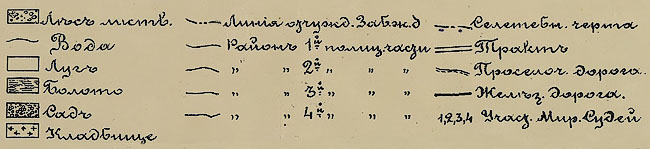 Лѣсъ листв.
Вода
Лугъ
Болото
Садъ
Кладбище
Линія отчужд. Забж.д
Районъ 1й полиц. части
„ 2й „ „
„ 3й „ „
„ 4й „ „
Селитебн. черта
Трактъ
Проселоч. дорога.
Желѣз. дорога.
1,2,3,4 Участ. Мир. Судей